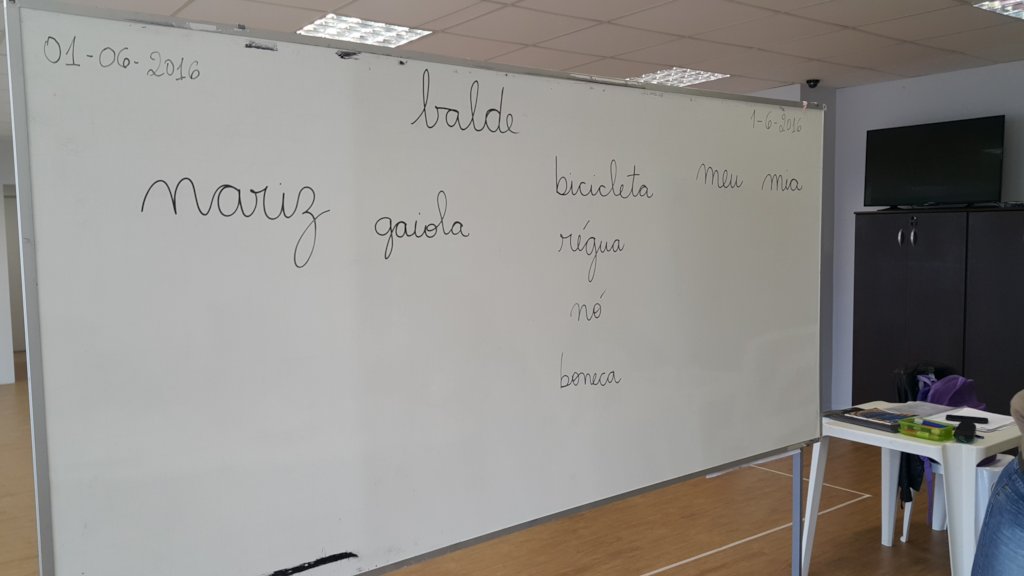 01-06-2016
balde
1-6-2016
nariz
gaiola
bicicleta
régua
nó
boneca
meu mia